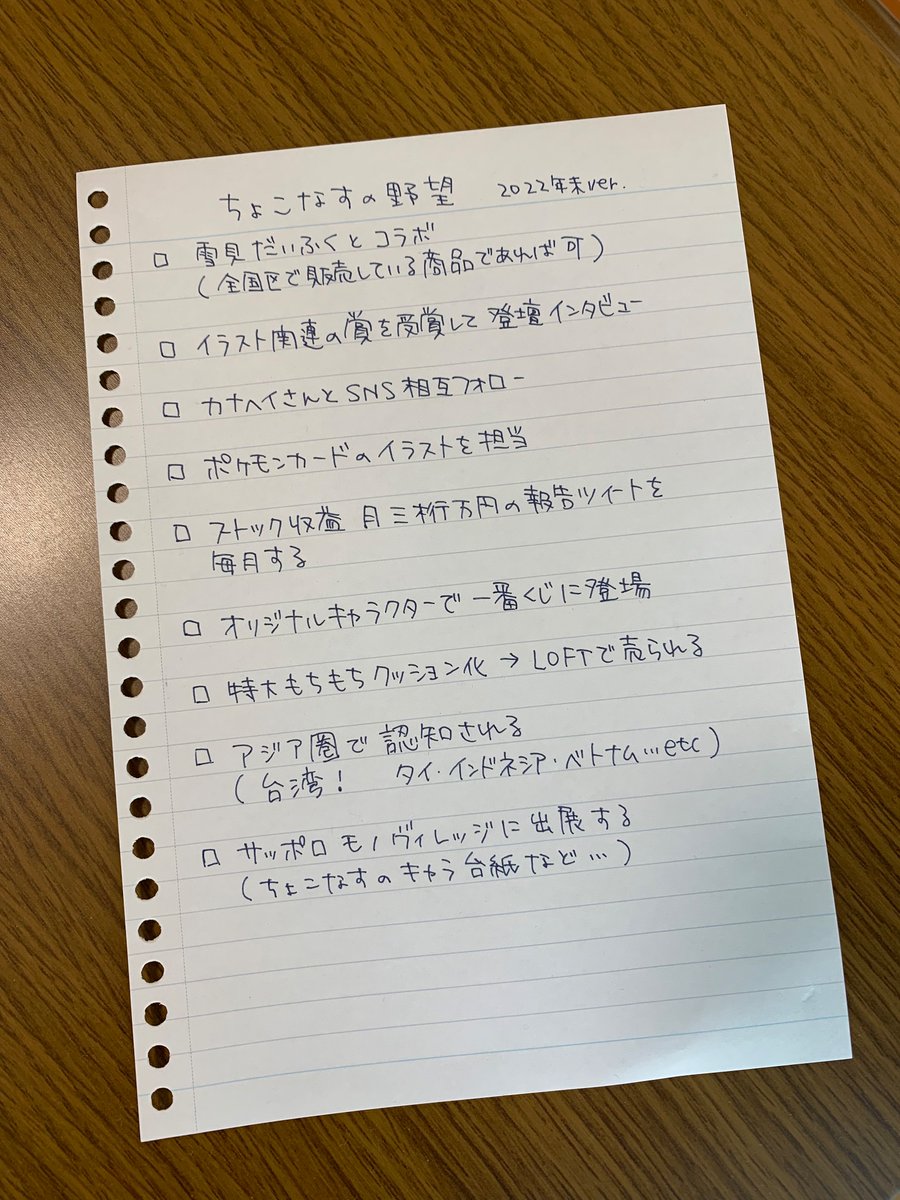 ちょこなすの野望 2022年末ver.
□ 雪見だいふくとコラボ
(全国区で販売している商品であれば可)
□ イラスト関連の賞を受賞して登壇インタビュー
□ カナヘイさんとSNS相互フォロー
□ ポケモンカードのイラストを担当
□ ストック収益 月三桁万円の報告ツイートを
毎月する
□ オリジナルキャラクターで一番くじに登場
□ 特大もちもちクッション化→LOFTで売られる
□ アジア圏で認知される
(台湾! タイ・インドネシア・ベトナム…etc)
□ サッポロモノヴィレッジに出展する
(ちょこなすのキャラ台紙など…)